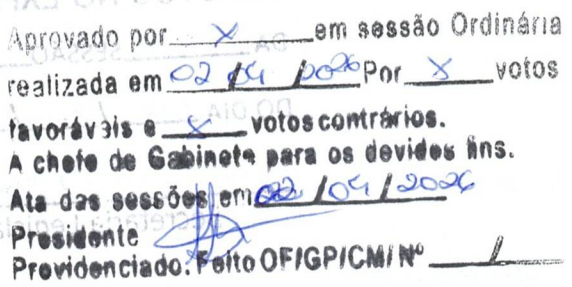 Aprovado por X em sessão Ordinária
realizada em 02/04/2026 Por X votos
favoráveis e X votos contrários.
A chefe de Gabinete para os devidos fins.
Ata das sessões em 02/04/2026
Presidente
Providenciado. Feito OF/GP/CM/ Nº ______/